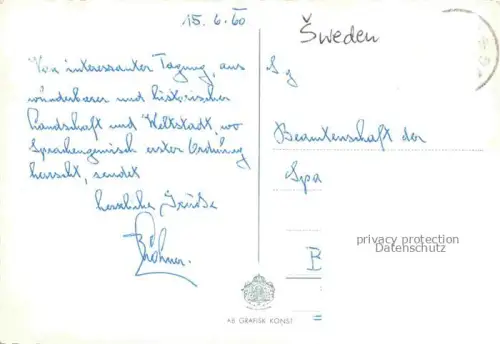 15. 6. 60
Šweden
Von interessanter Tagung, aus
wunderbarer und historischer
Landschaft und Weltstadt, wo
Sprachengemisch erster Ordnung
herrscht, sendet
herzliche Grüße
S g
Beamtenschaft der
Spa
B
privacy protection
Datenschutz
AB GRAFISK KONST